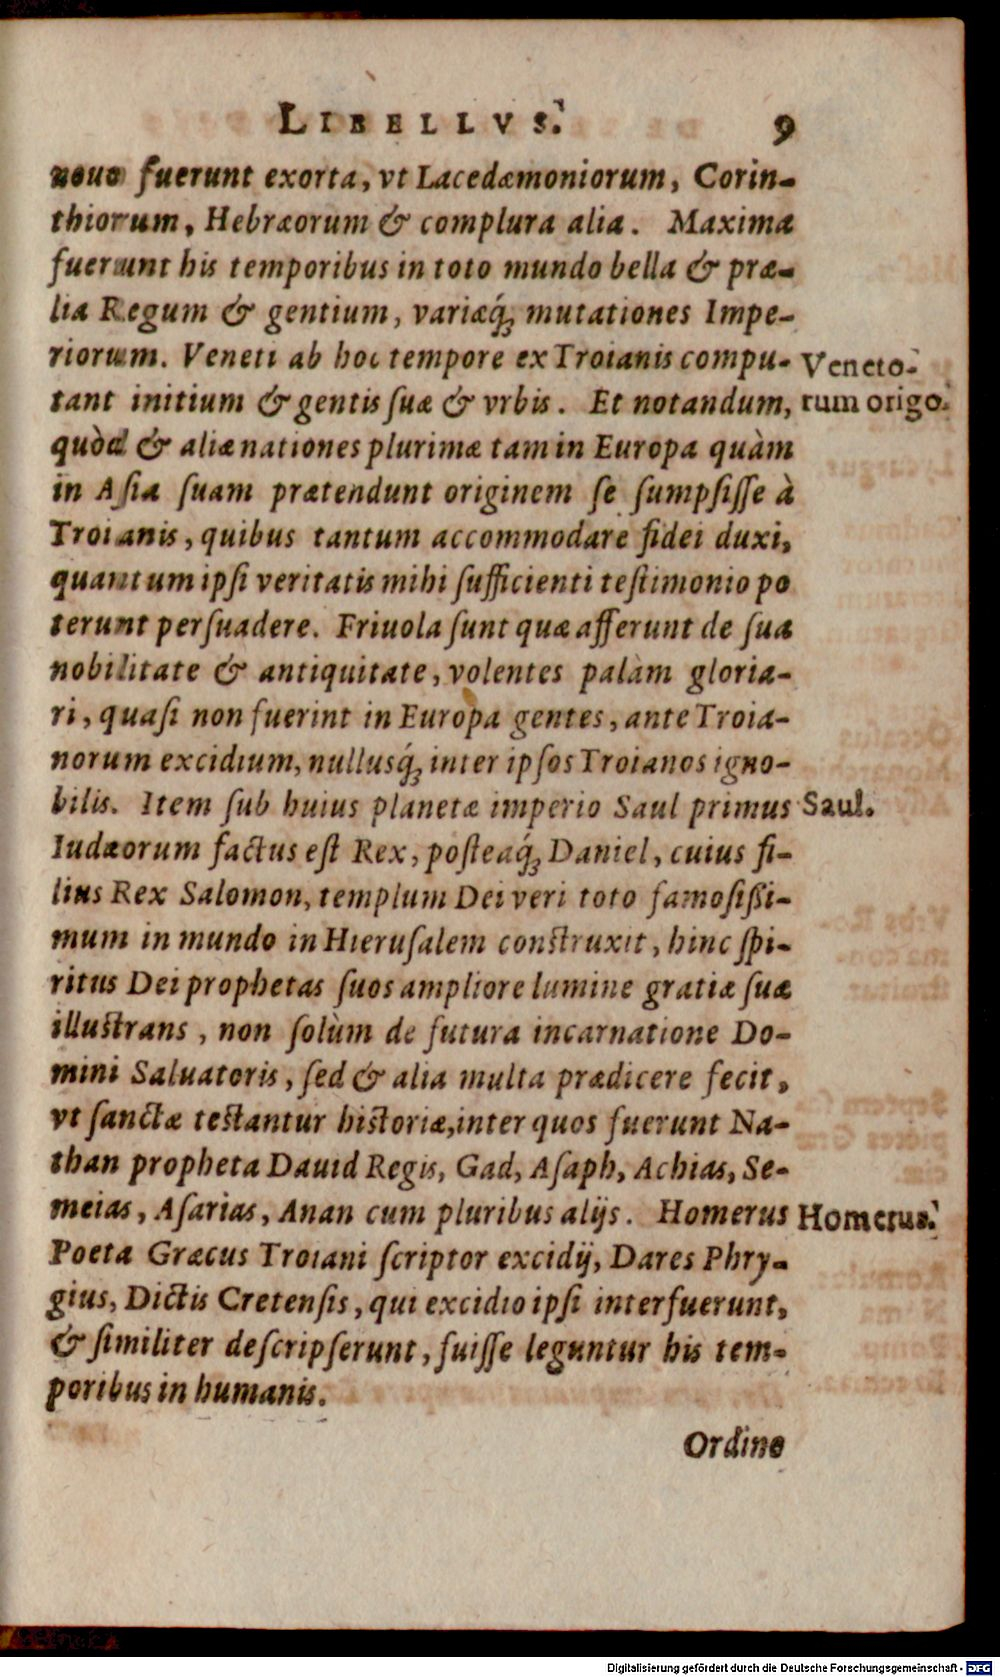 LIBELLVS. 9
nouo fuerunt exorta, vt Lacedæmoniorum, Corin-
thiorum, Hebræorum & complura alia. Maxima
fuerunt his temporibus in toto mundo bella & præ-
lia Regum & gentium, variæq́ꝫ mutationes Impe-
riorum. Veneti ab hoc tempore ex Troianis compu-
Veneto-
tant initium & gentis suæ & vrbis. Et notandum,
rum origo.
quòd & aliæ nationes plurimæ tam in Europa quàm
in Asia suam prætendunt originem se sumpsisse à
Troianis, quibus tantum accommodare fidei duxi,
quantum ipsi veritatis mihi sufficienti testimonio po
terunt persuadere. Friuola sunt quæ afferunt de sua
nobilitate & antiquitate, volentes palàm gloria-
ri, quasi non fuerint in Europa gentes, ante Troia-
norum excidium, nullusq́ꝫ inter ipsos Troianos igno-
bilis. Item sub huius planetæ imperio Saul primus
Saul.
Iudæorum factus est Rex, posteaq́ꝫ Daniel, cuius fi-
lius Rex Salomon, templum Dei veri toto famosißi-
mum in mundo in Hierusalem construxit, hinc spi-
ritus Dei prophetas suos ampliore lumine gratiæ suæ
illustrans, non solùm de futura incarnatione Do-
mini Saluatoris, sed & alia multa prædicere fecit,
vt sanctæ testantur historiæ, inter quos fuerunt Na-
than propheta Dauid Regis, Gad, Asaph, Achias, Se-
meias, Asarias, Anan cum pluribus alijs. Homerus
Homerus.
Poeta Græcus Troiani scriptor excidij, Dares Phry-
gius, Dictis Cretensis, qui excidio ipsi interfuerunt,
& similiter descripserunt, fuisse leguntur his tem-
poribus in humanis.
Ordine
Digitalisierung gefördert durch die Deutsche Forschungsgemeinschaft - DFG